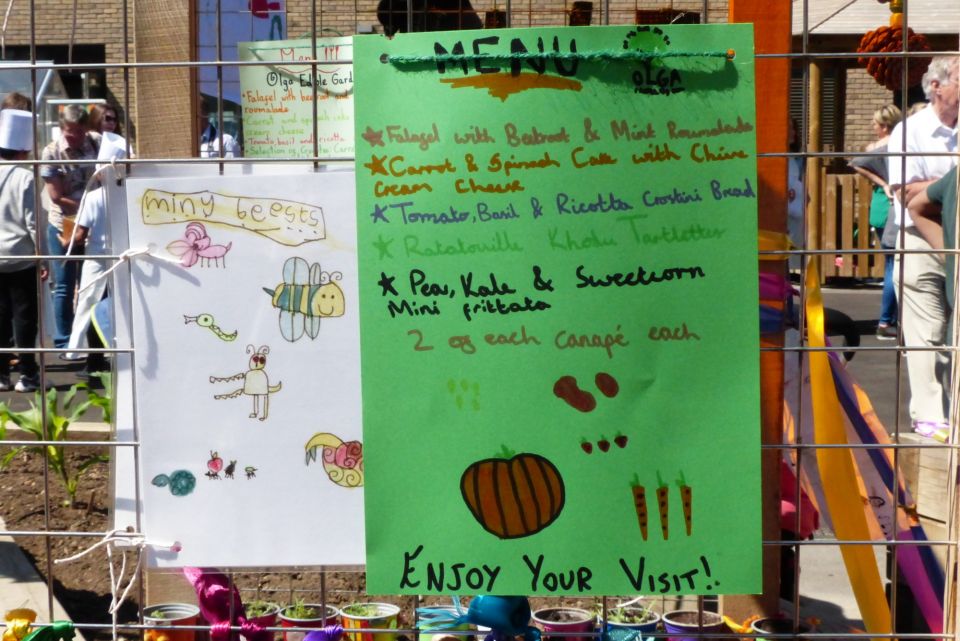 MENU
OLGA
Falafel with Beetroot & Mint Roumalade
Carrot & Spinach Cake with Chive
Cream Cheese
Tomato, Basil & Ricotta Crostini Bread
Ratatouille Khodu Tartlettes
Pea, Kale & Sweetcorn
Mini frittata
2 of each canapé each
ENJOY YOUR VISIT!
miny beests
Olga Edible Gard
Falafel with beetroot and
roumalade
Carrot and spinach cake
cream cheese
Tomato, basil and ricotta